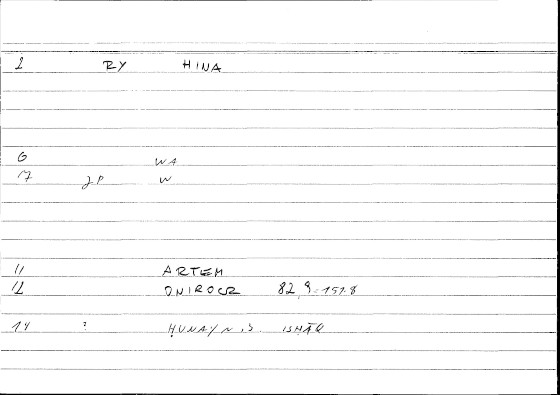 2 RY HINA
6 WA
17 JP W
11 ARTEM
12 ONIROCR 82,9-151.8
14 ? ḤUNAYN .S. ISḤĀQ